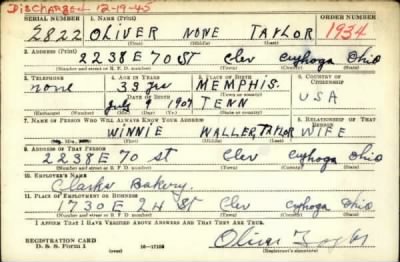 Discharged 12-19-45
SERIAL NUMBER 1. NAME (Print) ORDER NUMBER
2822 OLIVER NONE TAYLOR 1934
(First) (Middle) (Last)
2. ADDRESS (Print)
2238 E 70 ST Clev Cuyhoga Ohio
(Number and street or R. F. D. number) (Town) (County) (State)
3. TELEPHONE 4. AGE IN YEARS 5. PLACE OF BIRTH 6. COUNTRY OF CITIZENSHIP
none 33 yrs MEMPHIS.
DATE OF BIRTH
July 9 1907 TENN USA
(Exchange) (Number) (Mo.) (Day) (Yr.) (State or country)
7. NAME OF PERSON WHO WILL ALWAYS KNOW YOUR ADDRESS 8. RELATIONSHIP OF THAT PERSON
WINNIE WALLER TAYLOR WIFE
(First) (Middle) (Last)
9. ADDRESS OF THAT PERSON
2238 E 70 st Clev Cuyhoga Ohio
(Number and street or R. F. D. number) (Town) (County) (State)
10. EMPLOYER'S NAME
Clarks Bakery.
11. PLACE OF EMPLOYMENT OR BUSINESS
1730 E 24 St Clev Cuyhoga Ohio
(Number and street or R. F. D. number) (Town) (County) (State)
I AFFIRM THAT I HAVE VERIFIED ABOVE ANSWERS AND THAT THEY ARE TRUE.
REGISTRATION CARD
D. S. S. Form 1 (over) 16-17105 Oliver Taylor
(Registrant's signature)